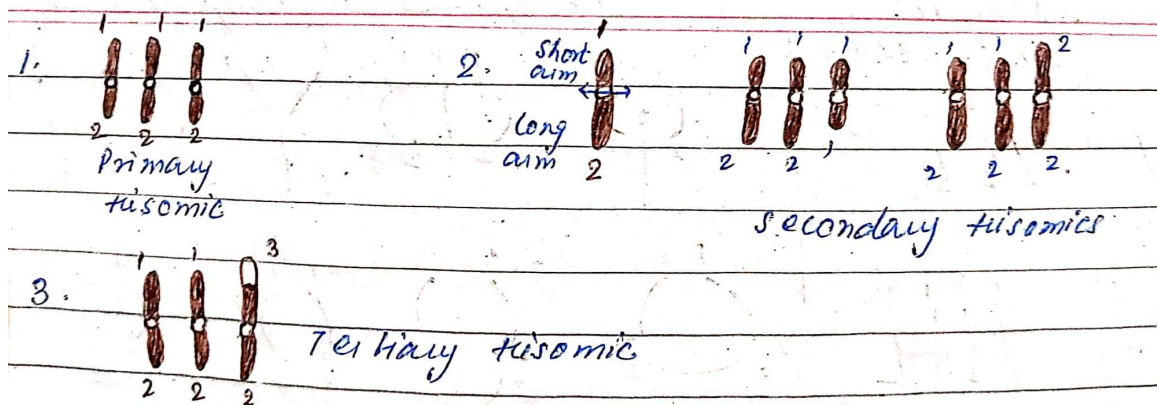 1 1 1
1.
2 2 2
Primary
trisomic
2.
1
short
arm
long
arm
2
1 1 1
2 2 1
1 1 2
2 2 2.
secondary trisomics
3.
1 1 3
2 2 2
Tertiary trisomic